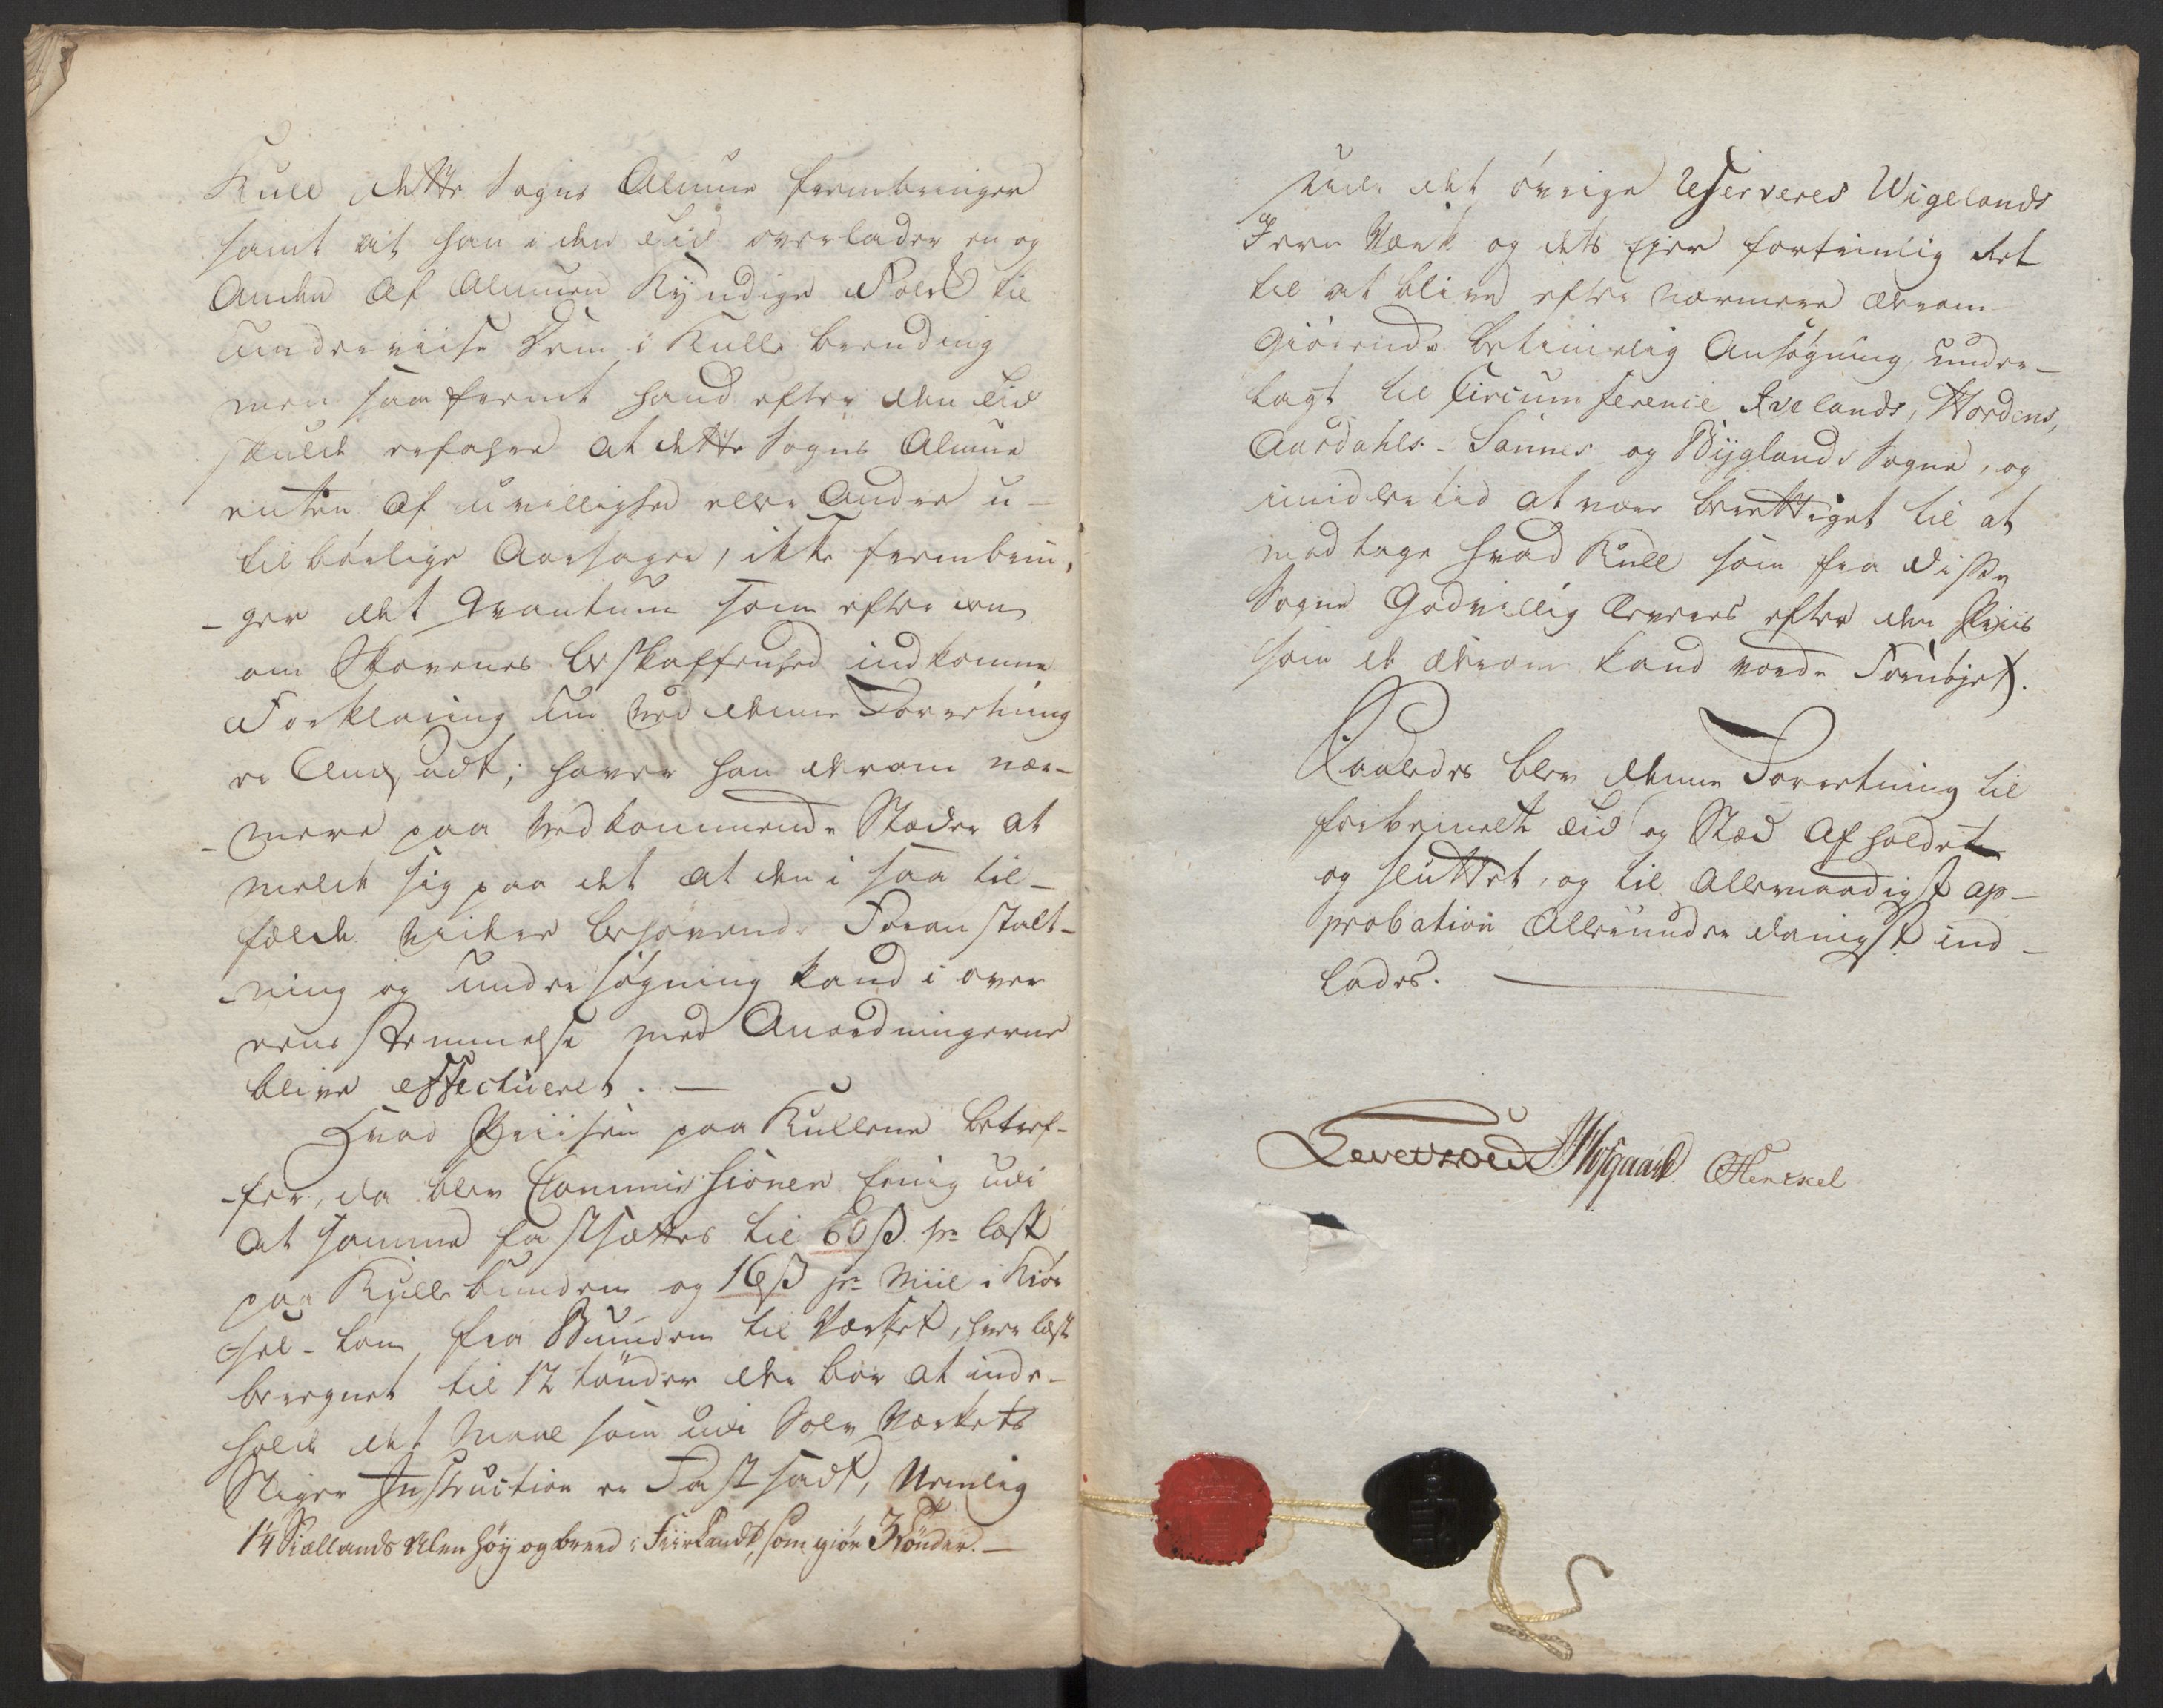 Kull dette Sogns Almue frembringer
samt at han i den tiid overlader en og
Anden af Almuen Kyndige Folk til
underviise Dem i Kulle brænding
men saafremt hand efter den Tiid
skulde erfahre at dette Sogns Almue
enten af uvillighed eller Andre u-
tilbørlige Aarsager, ikke frembrin-
-ger det Qvantum som efter den
om Skovenes beskaffenhed indkomne
Forklaring ved denne Forretning
er; haver han derom nær-
-mere paa vedkommende Stæder at
melde sig paa det at den i saa til-
fælde videre behøvende Foranstalt-
-ning og undersøgning kand i over
eens stemmelse med Anordningerne
blive effectueret. —
Hvad Priisen paa Kullene betref-
-fer, da blev Commissionen Eenig udi
at samme fastsættes til 60 ß pr læst
paa Kulle bunden og 16 ß pr Miil i Kiør
sel-løn, fra Bunden til Værket, hver læst
beregnet til 12 tønder der bør at inde-
holde det Maal som udi Sølv Værkets
Stiger Instruction er Fastsadt, Nemlig
1¼ Siællands Alen høy og breed i Fiirkandt, som giør 3 Tønder. —
det øvrige reserveres Wigelands
Jern Værk og dets Ejer fortrinlig Ret
til at blive efter nærmere derom
giørende betimelig Ansøgning under-
lagt til Circumference Ivelands, Hordens,
Aardahls - Sannes og Bÿglands Sogne, og
imidlertid at være berettiget til at
modtage hvad Kull som fra disse
Sogne Godvillig leveres efter den Priis
som de derom kand vorde Foreenet.
Saaledes blev denne Forretning til
forbemelte tiid og Stæd afholdet
og sluttet, og til Allernaadigst ap-
probation Allerunderdanigst ind-
lades. —
Levetzow Hofgaard Henckel